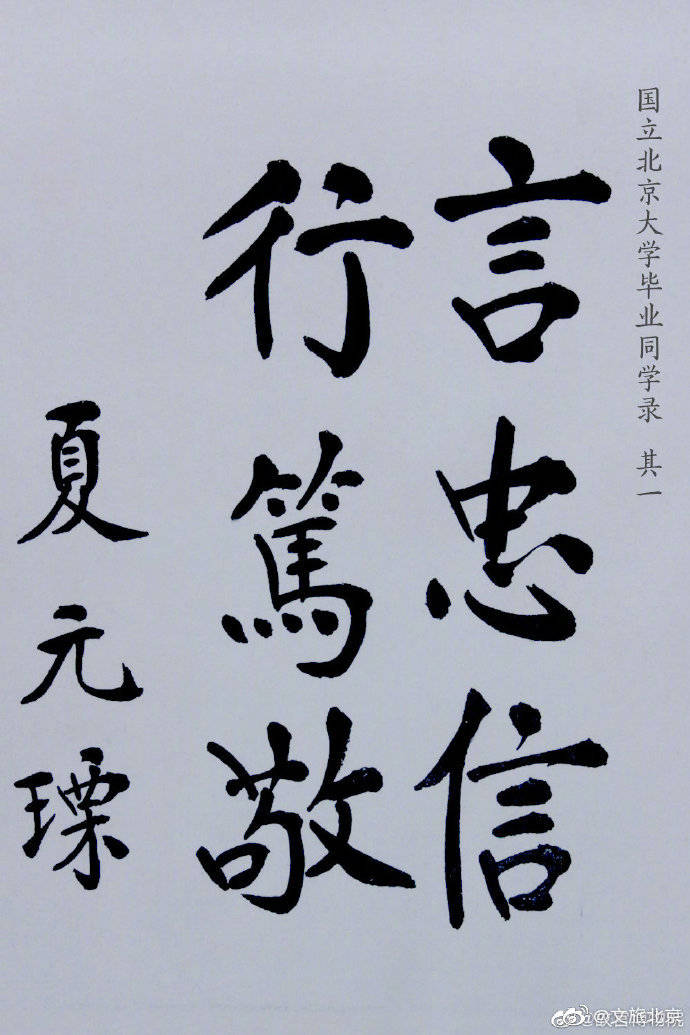 国立北京大学毕业同学录 其一
言忠信
行篤敬
夏元瑮
@文旅北京